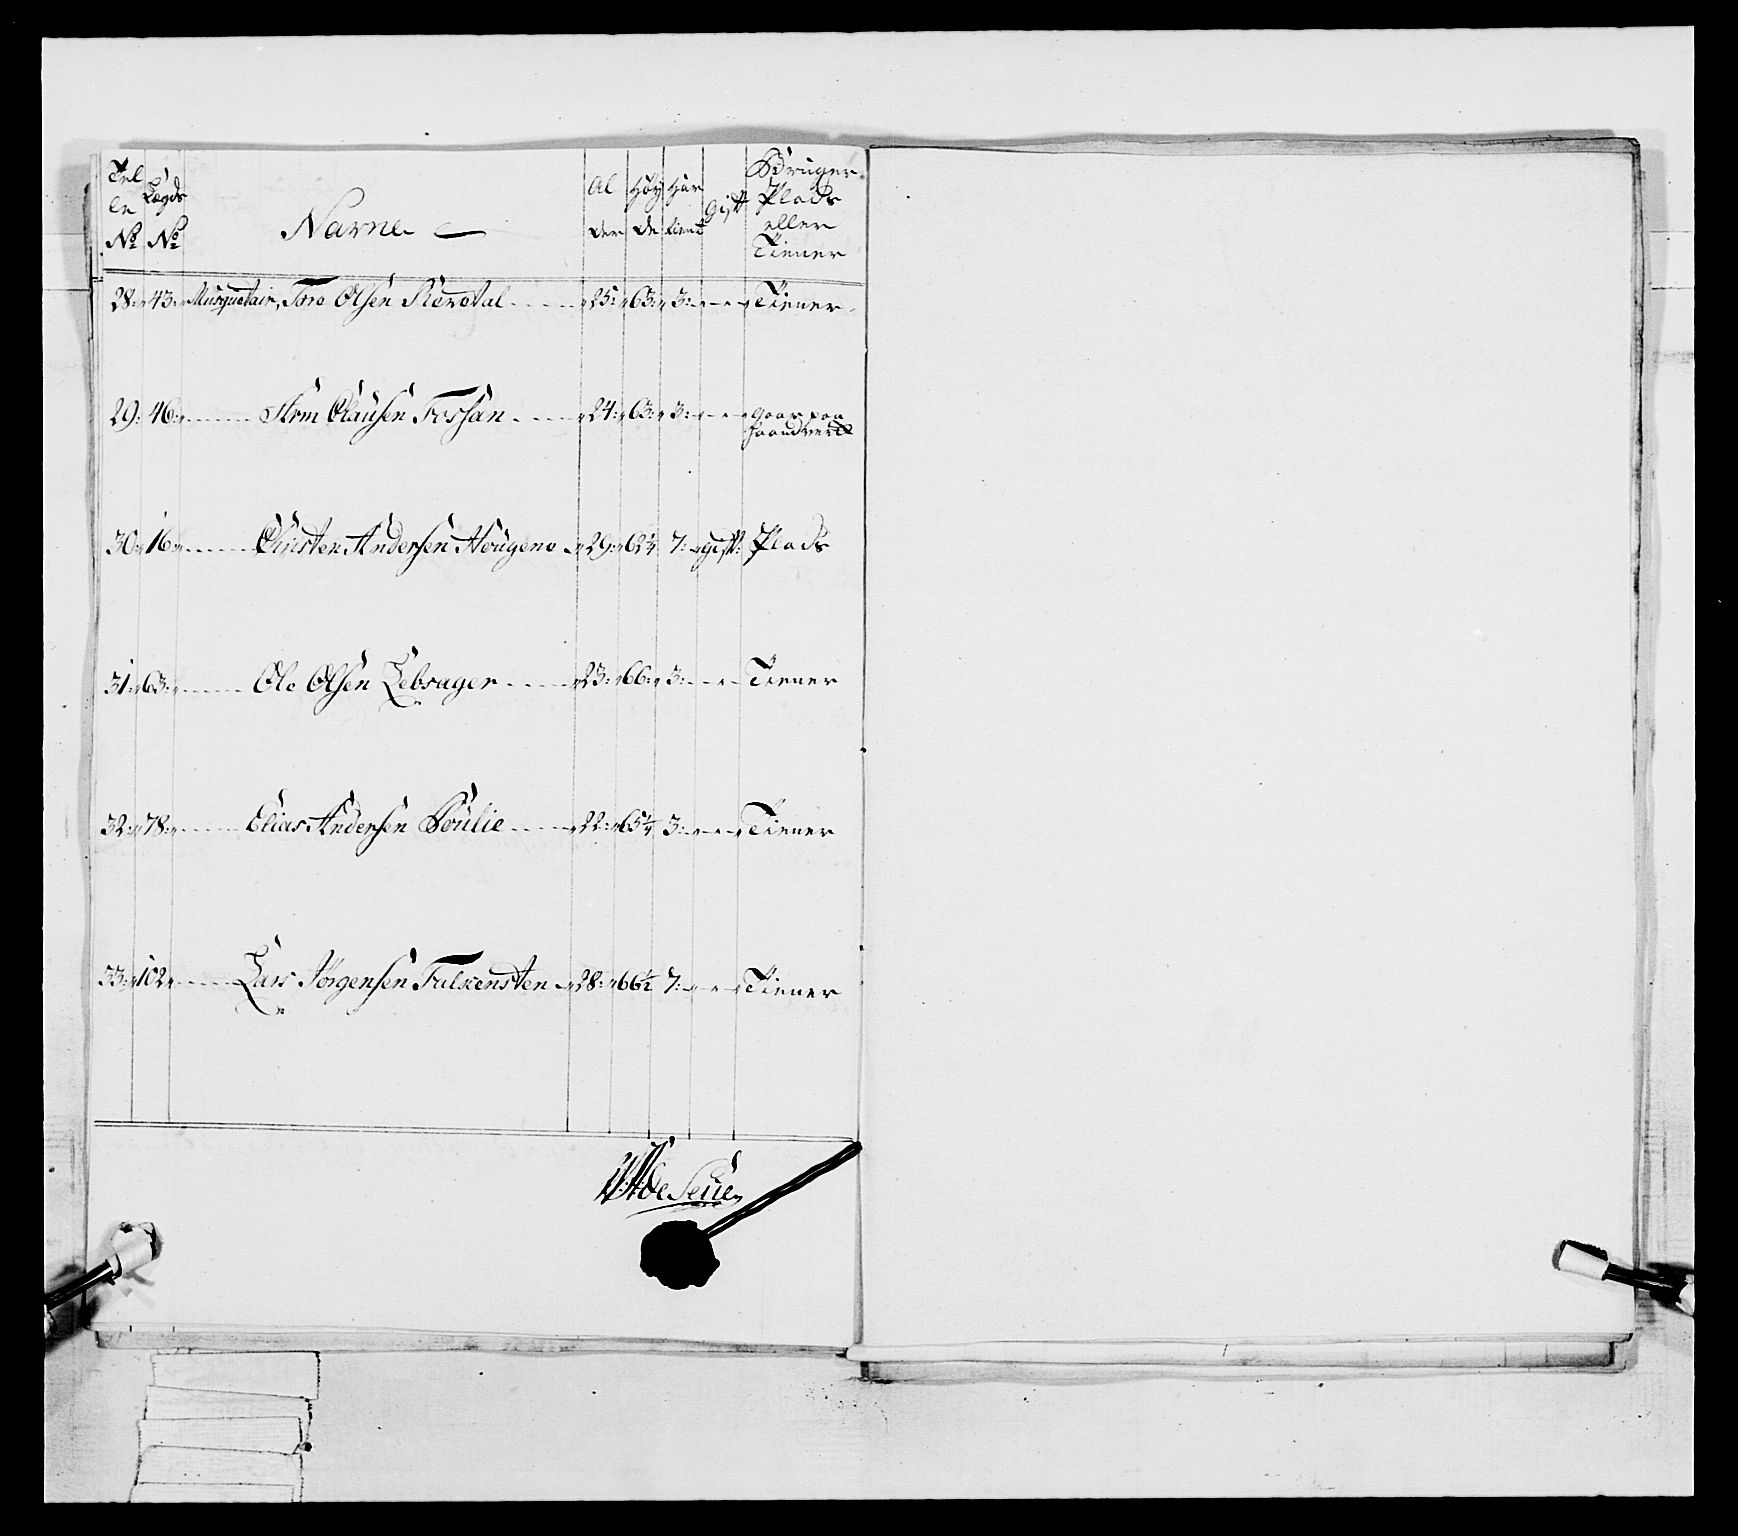 Tel
le
No
Lægds
No
Navne
Al
der
Høy
de
Har
tient
Gift
Bruger
Plads
eller
Tiener
28 43 Musquetair, Tore Olsen 25 63 3 Tiener
29 46 Arm Clausen Fossan 24 63 3 gaar paa
haandverk
30 16 Christen Andersen Hougene 29 62¼ 7 gift Plads
31 63 Ole Olsen Lebsager 23 66 3 Tiener
32 78 Elias Andersen 22 65¼ 3 Tiener
33 102 Lars Jørgensen Falkensten 28 66½ 7 Tiener
de Seue